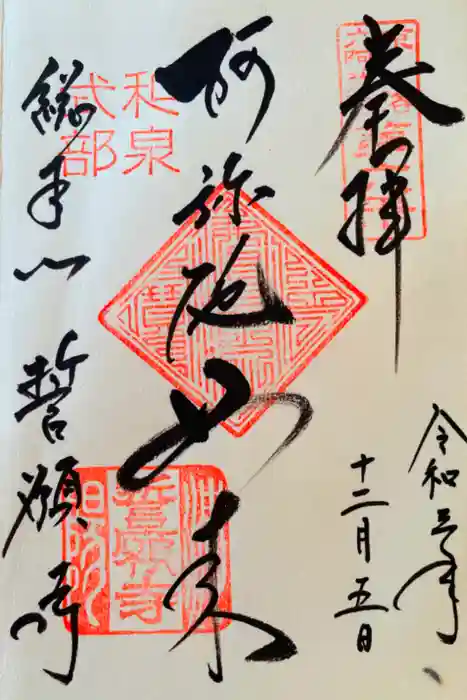 奉拝
令和三年
十二月五日
阿弥陀如来
和泉
式部
総本山 誓願寺
誓願寺